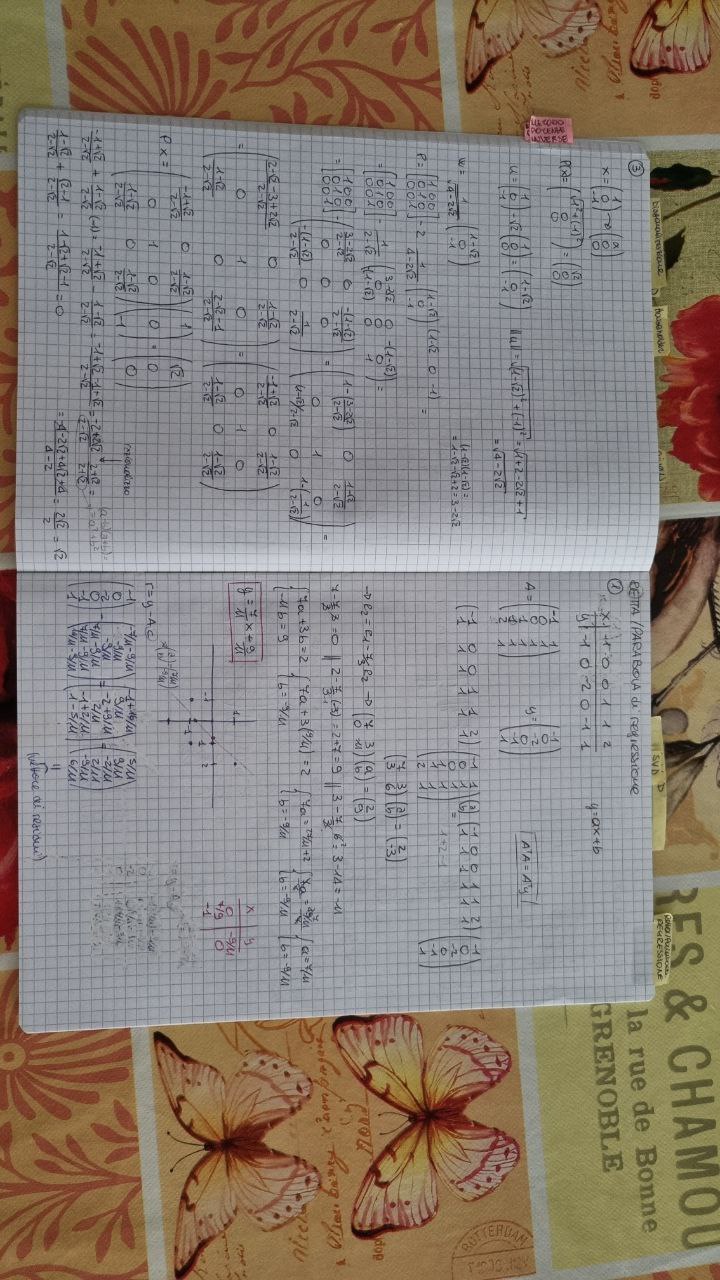 RES & CHAMOU
la rue de Bonne
GRENOBLE
SVD
REGRESSIONE
③
x = (1 0 -1) → (a 0 0)
P(x) = (√1²+(-1)² 0 0) = (√2 0 0)
u = (1 0 -1) - √2 (1 0 0) = (1-√2 0 -1) ||u|| = √(1-√2)²+(-1)² = √1+2-2√2+1
= √4-2√2
w = 1/√4-2√2 (1-√2 0 -1)
(1-√2)(1-√2) =
= 1-√2-√2+2 = 3-2√2
P = [1 0 0 0 1 0 0 0 1] - 2 1/4-2√2 (1-√2 0 -1) (1-√2 0 -1) =
= [1 0 0 0 1 0 0 0 1] - 1/2-√2 (3-2√2 0 -(1-√2) 0 0 0 -(1-√2) 0 1) =
= [1 0 0 0 1 0 0 0 1] - (3-2√2/2-√2 0 -(1-√2)/2-√2 0 0 0 -(1-√2)/2-√2 0 1/2-√2) = (1-(3-2√2/2-√2) 0 1-√2/2-√2 0 1 0 (1-√2)/2-√2 0 1-(1/2-√2)) =
= (2-√2-3+2√2/2-√2 0 1-√2/2-√2 0 1 0 1-√2/2-√2 0 2-√2-1/2-√2) = (-1+√2/2-√2 0 1-√2/2-√2 0 1 0 1-√2/2-√2 0 1-√2/2-√2)
P x = (-1+√2/2-√2 0 1-√2/2-√2 0 1 0 1-√2/2-√2 0 1-√2/2-√2) (1 0 -1) = (√2 0 0)
razionalizzo
-1+√2/2-√2 + 1-√2/2-√2 (-1) = -1+√2/2-√2 - 1-√2/2-√2 = -1+√2-1+√2/2-√2 = -2+2√2/2-√2 2+√2/2+√2 =
1-√2/2-√2 + √2-1/2-√2 = 1-√2+√2-1/2-√2 = 0
= -4-2√2+4√2+4/4-2 = 2√2/2 = √2
RETTA/PARABOLA di regressione
①
x -1 0 0 1 1 2
y -1 0 -2 0 -1 1
y = ax+b
A = (-1 1 0 1 0 1 1 1 1 1 2 1) y = (-1 0 -2 0 -1 1)
AᵗA = Aᵗy
(-1 0 0 1 1 2 1 1 1 1 1 1) (-1 1 0 1 0 1 1 1 1 1 2 1) (a b) = (-1 0 0 1 1 2 1 1 1 1 1 1) (-1 0 -2 0 -1 1)
1+2-1
(7 3 3 6) (a b) = (2 -3)
→ e₂ = e₁ - 7/3 e₂ → (7 3 0 -11) (a b) = (2 9)
7 - 7/3 3 = 0 || 2 - 7/3 (-3) = 2+7 = 9 || 3 - 7/3 6 = 3-14 = -11
{7a+3b=2 {7a+3(-9/11)=2 {7a=27/11+2 {7a=49/11 {a=7/11
{-11b=9 {b=-9/11 {b=-9/11 {b=-9/11 {b=-9/11
y = 7/11 x + 9/11
x y
0 -9/11
7/9 0
-1
1
-1 1 2
-1
r = y - A·c
(-1 0 -2 0 -1 1) - (-7/11-9/11 -9/11 -9/11 7/11-9/11 7/11-9/11 14/11-9/11) = (-1+16/11 9/11 -2+9/11 2/11 -1+2/11 1-5/11) = (5/11 9/11 -2/11 2/11 -9/11 6/11)
(vettore dei residui)